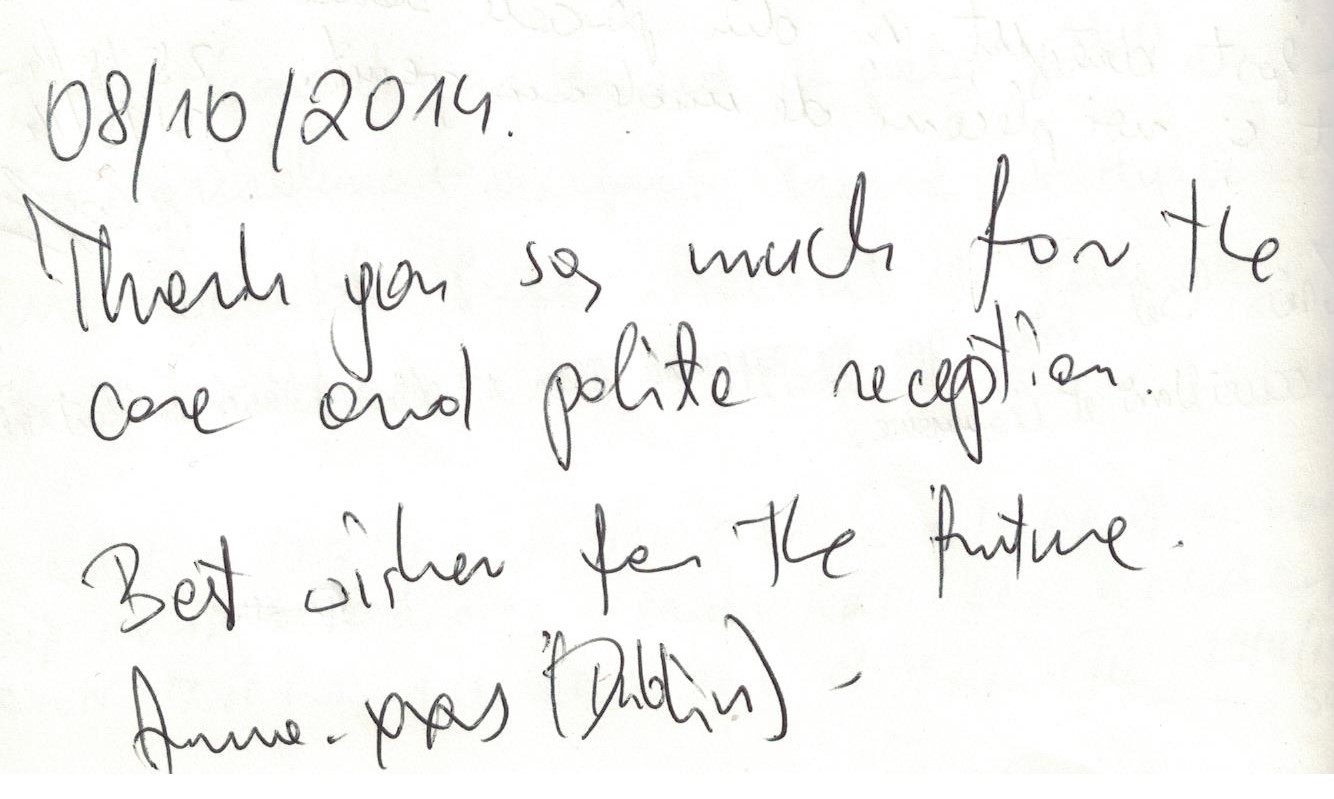 08/10/2014.
Thank you so, much for the
care and polite reception.
Best wishes for the future.
Anne. xxx (Dublin) -